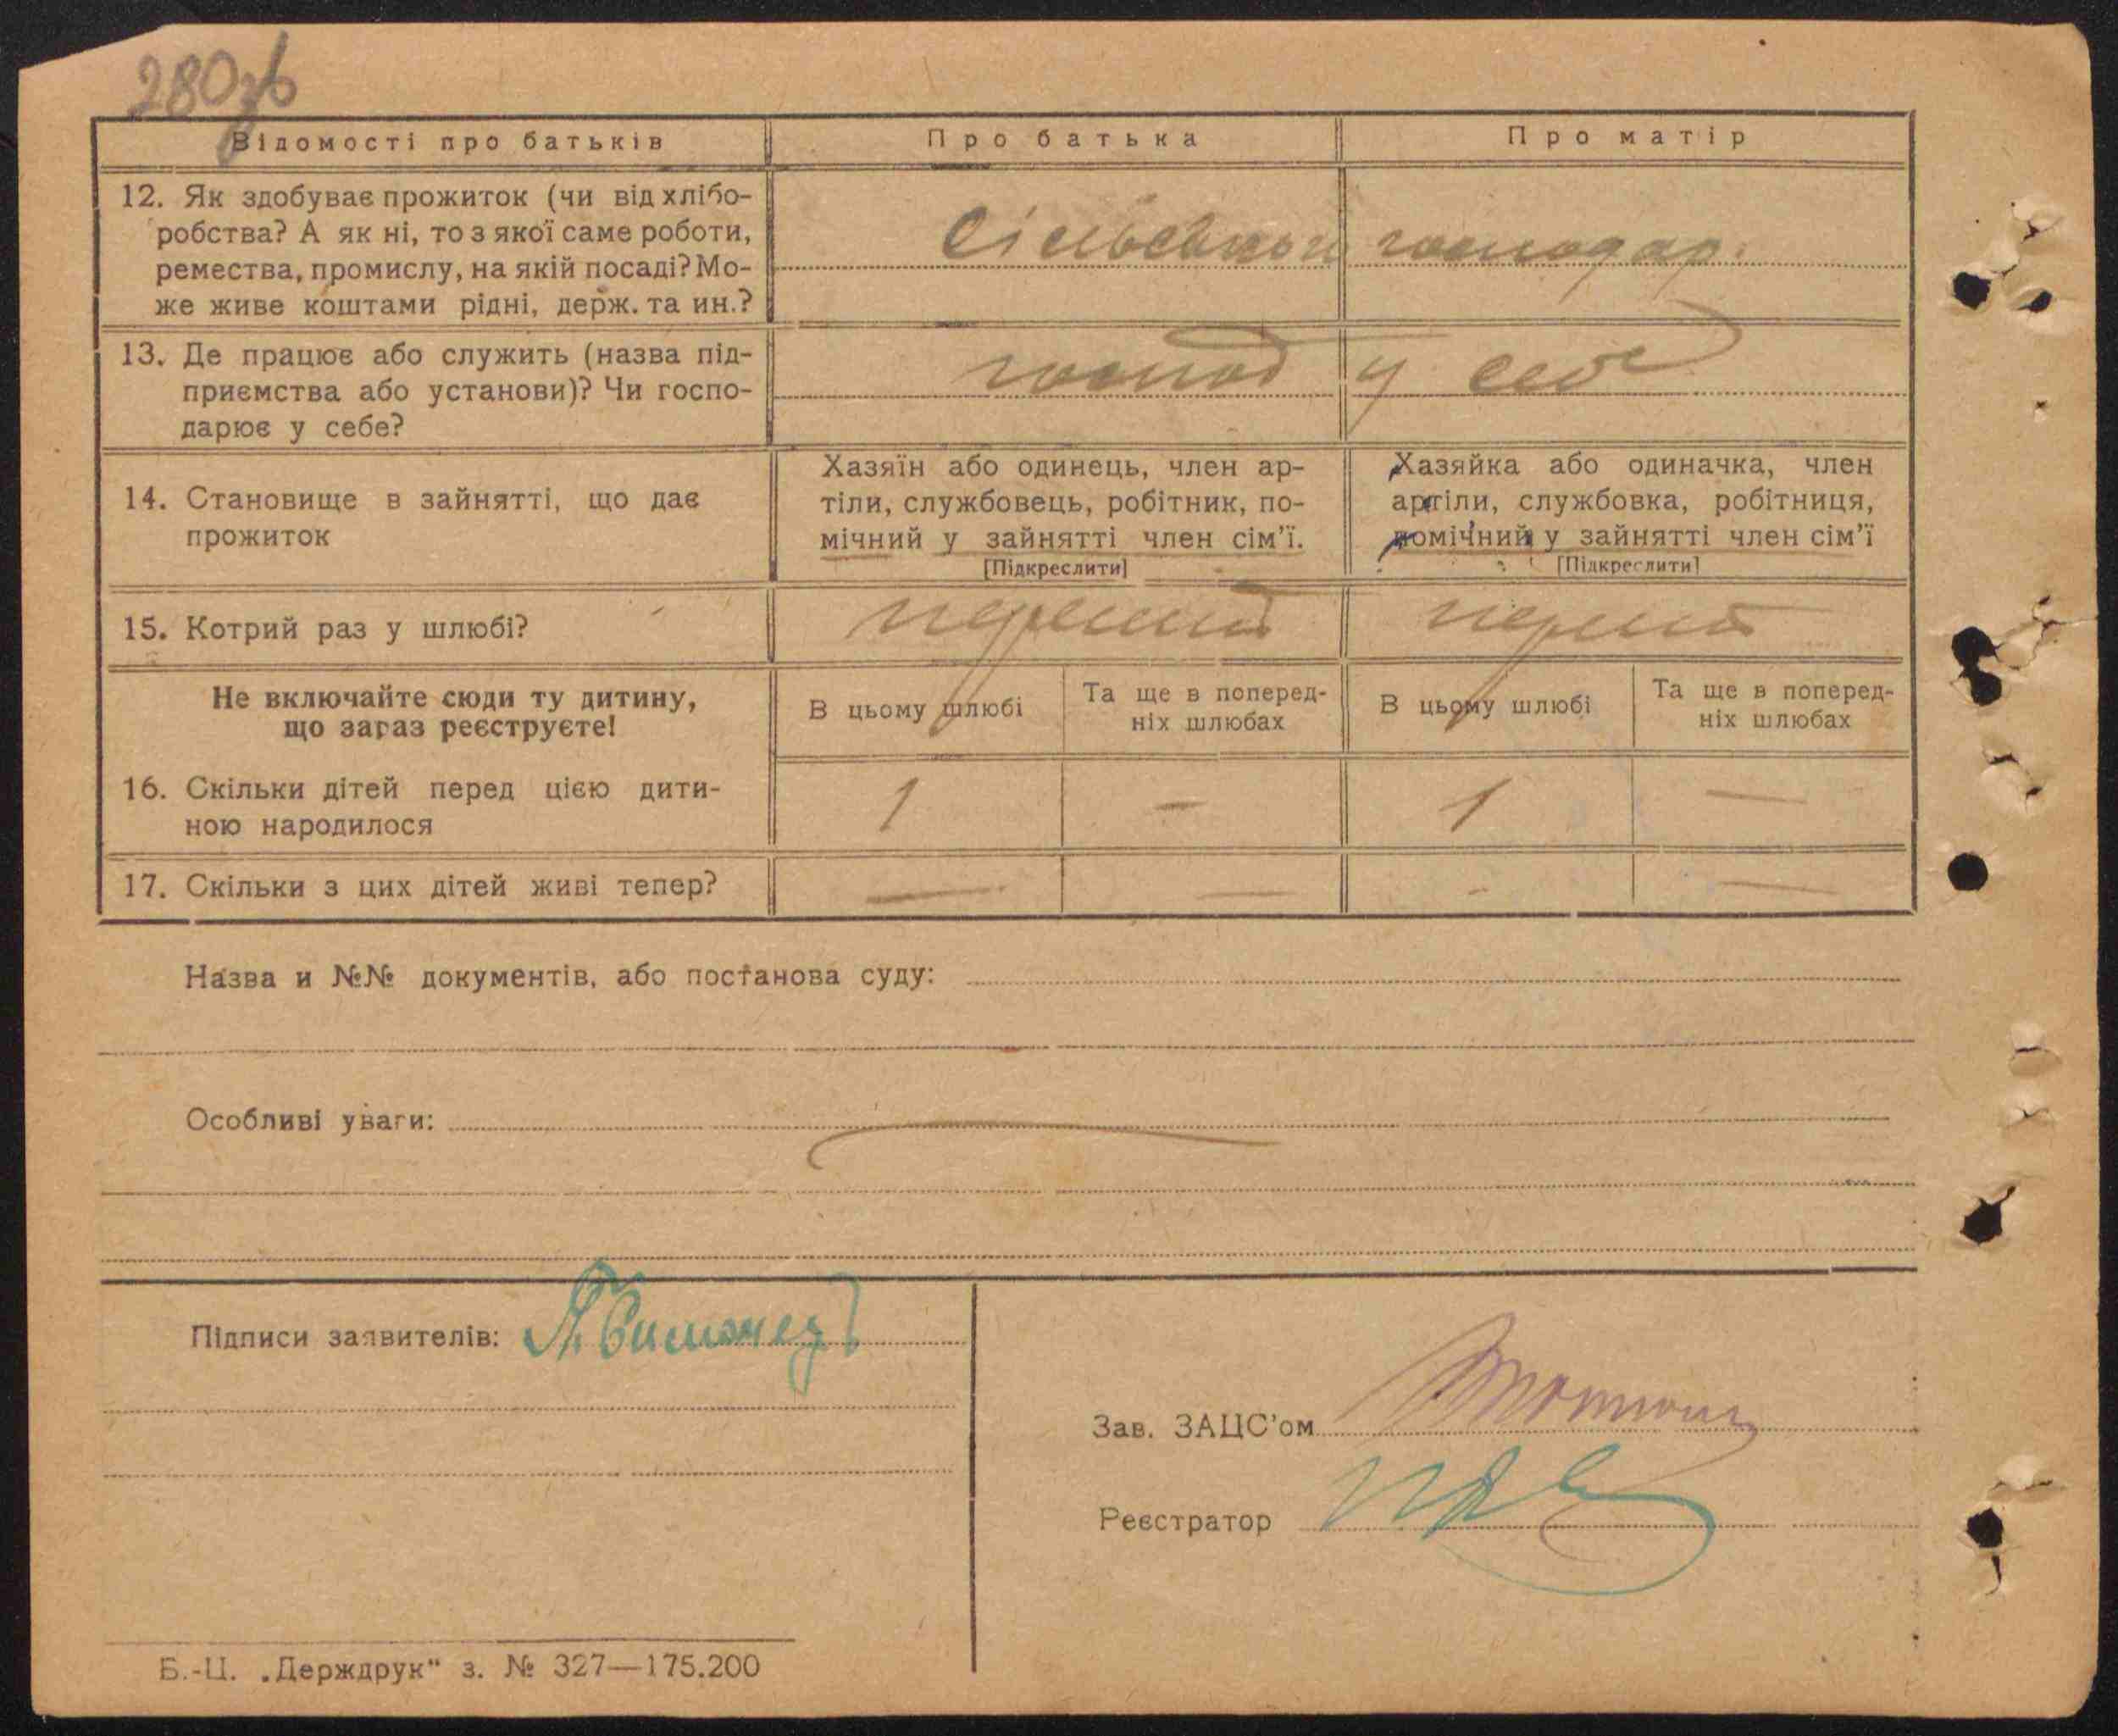 280зв
Відомості про батьків
Про батька
Про матір
12. Як здобуває прожиток (чи від хлібо-
робства? А як ні, то з якої саме роботи,
ремества, промислу, на якій посаді? Мо-
же живе коштами рідні, держ. та ин.?
сільський господар.
13. Де працює або служить (назва під-
приємства або установи)? Чи госпо-
дарює у себе?
господ у себе
14. Становище в зайнятті, що дає
прожиток
Хазяїн або одинець, член ар-
тіли, службовець, робітник, по-
мічний у зайнятті член сім'ї.
[Підкреслити]
Хазяйка або одиначка, член
артіли, службовка, робітниця,
помічний у зайнятті член сім'ї
[Підкреслити]
15. Котрий раз у шлюбі?
перший
перший
Не включайте сюди ту дитину,
що зараз реєструєте!
В цьому шлюбі
Та ще в поперед-
ніх шлюбах
В цьому шлюбі
Та ще в поперед-
ніх шлюбах
16. Скільки дітей перед цією дити-
ною народилося
1 — 1 —
17. Скільки з цих дітей живі тепер?
— — - —
Назва и №№ документів, або постанова суду:
Особливі уваги:
Підписи заявителів:
Зав. ЗАЦС'ом
Реєстратор
Б.-Ц. „Держдрук" з. № 327—175.200